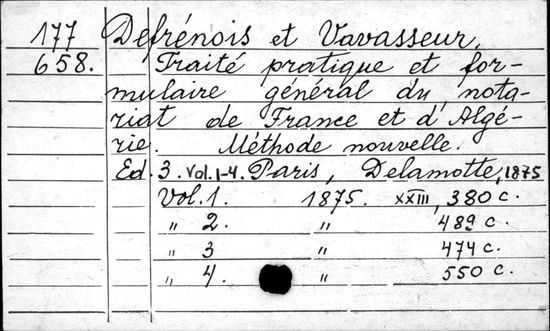 177 Defrénois et Vavasseur,
658. Traité pratique et for-
mulaire général du nota-
riat de France et d'Algé-
rie. Méthode nouvelle.
Ed. 3. Vol. 1-4. Paris, Delamotte, 1875
Vol. 1. 1875. XXIII, 380 c.
„ 2. „ 489 c.
„ 3 „ 474 c.
„ 4. „ 550 c.